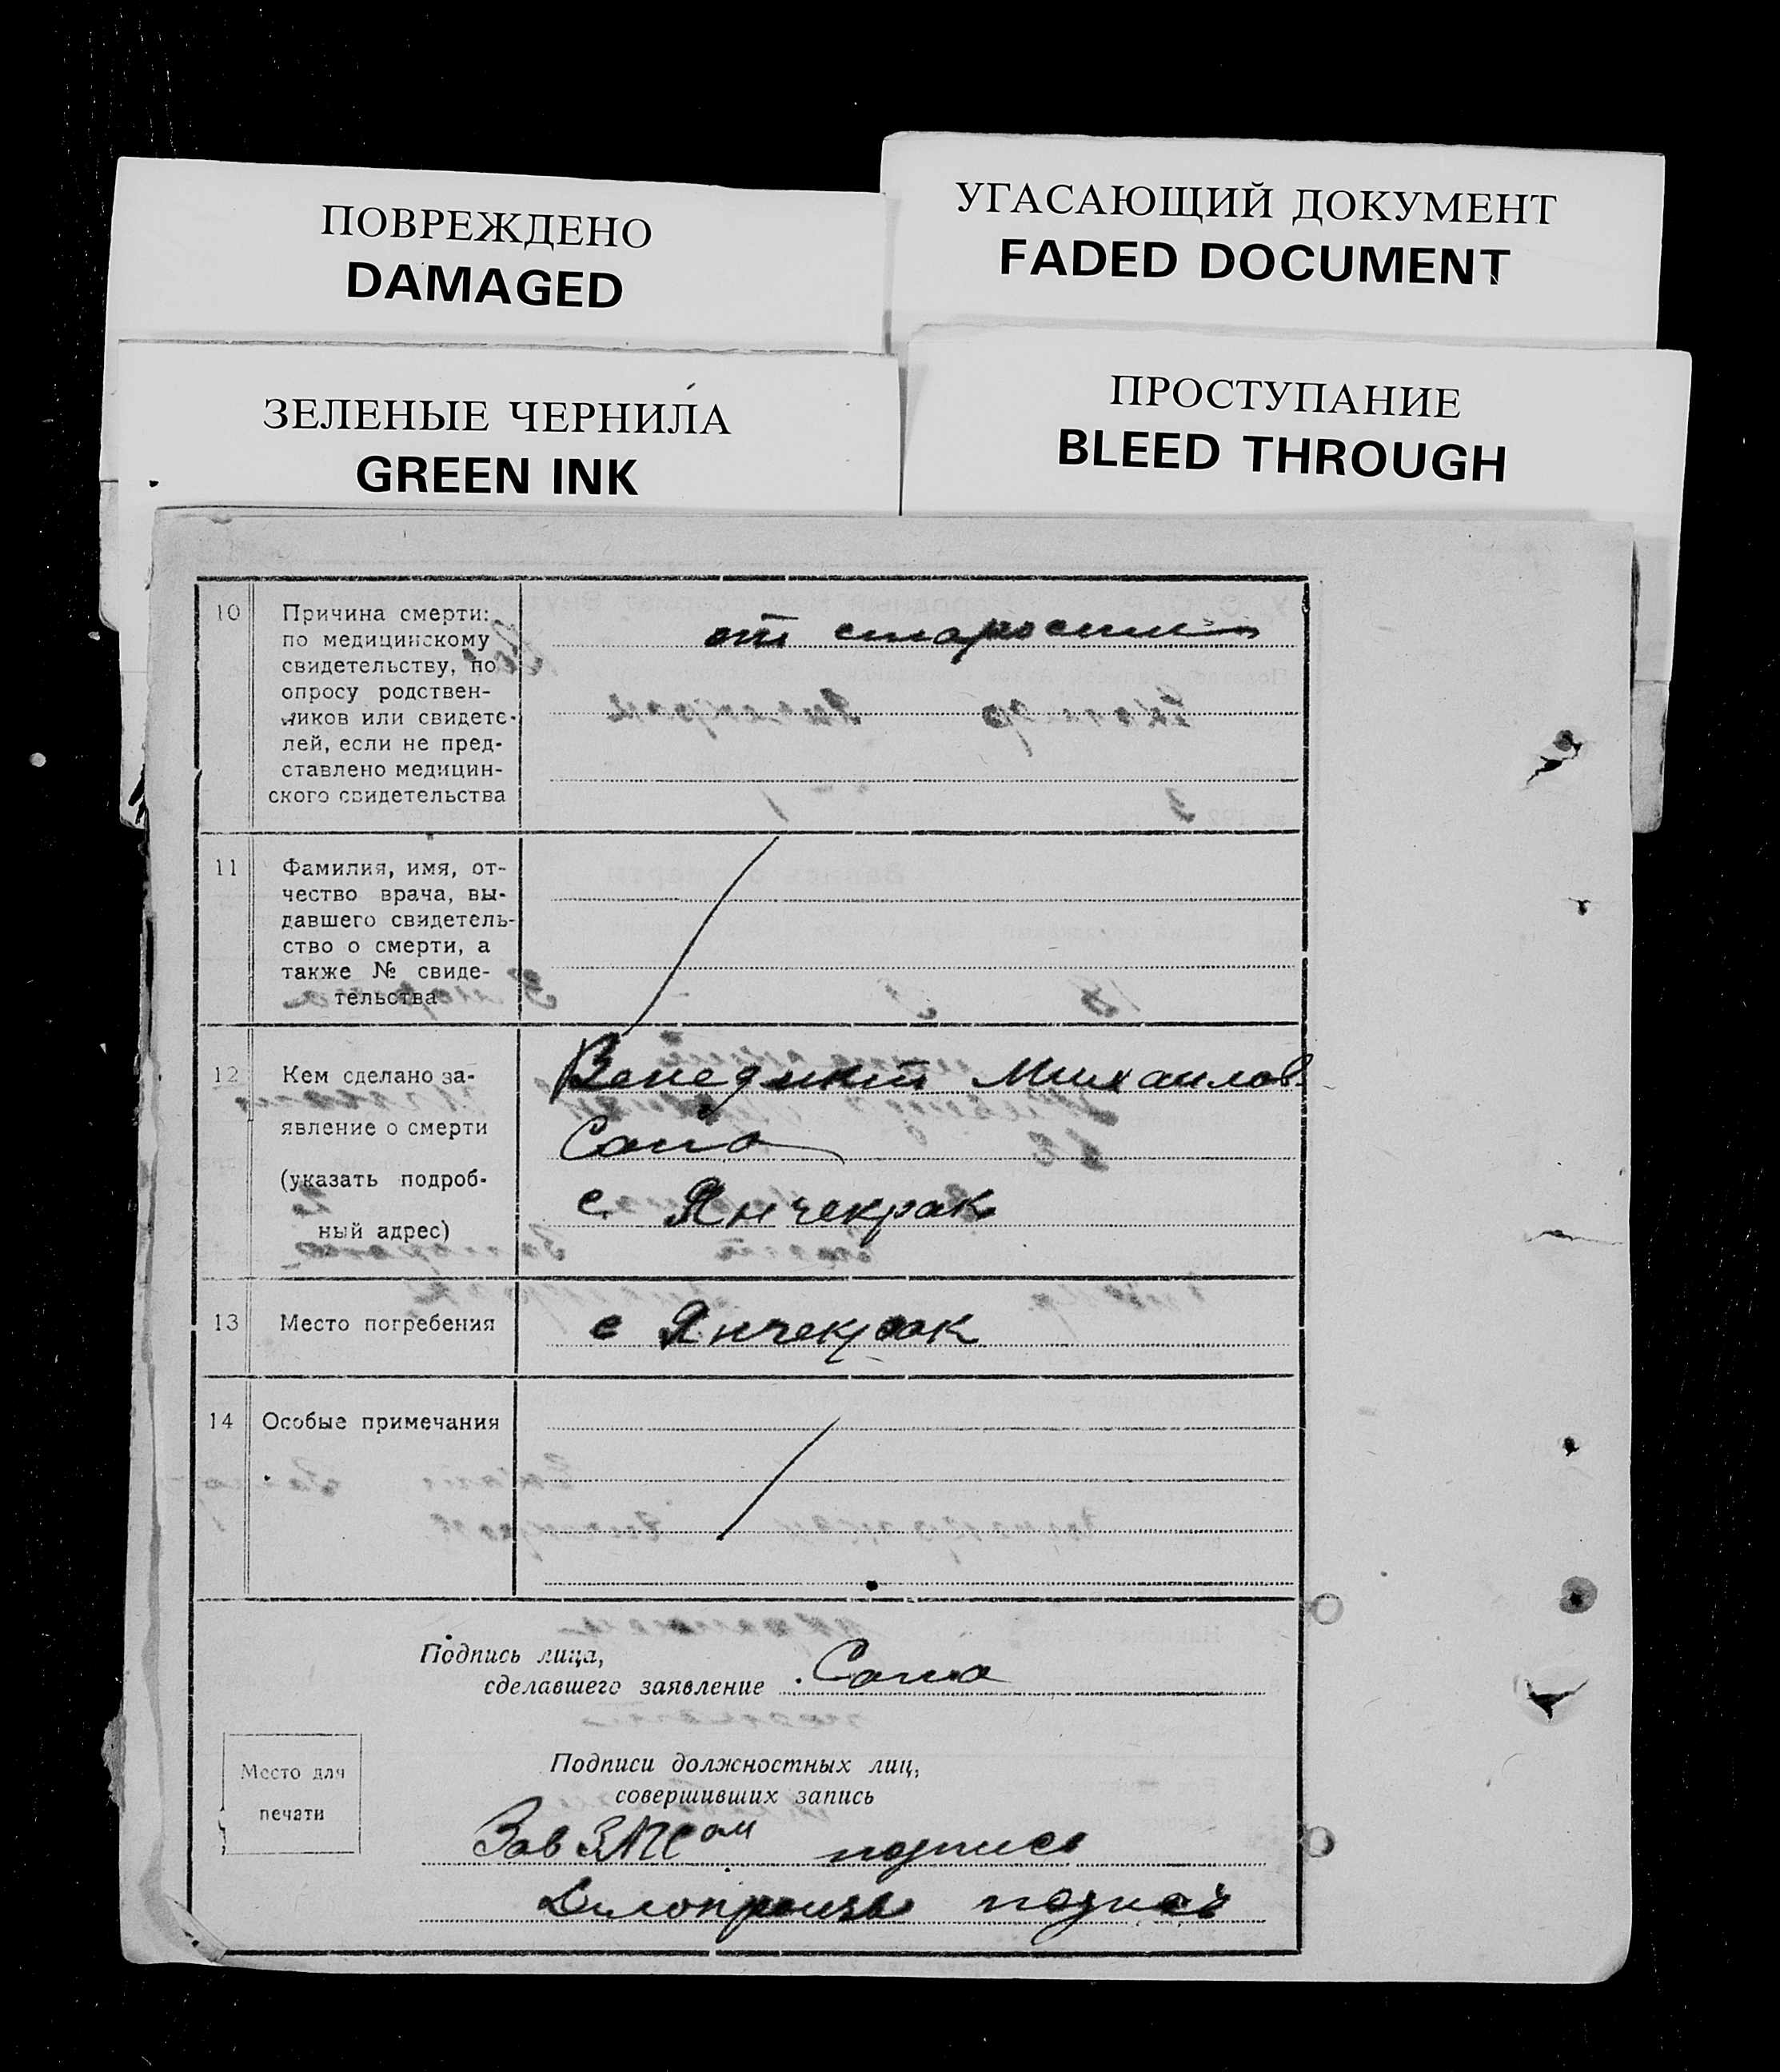 ПОВРЕЖДЕНО
DAMAGED
УГАСАЮЩИЙ ДОКУМЕНТ
FADED DOCUMENT
ЗЕЛЕНЫЕ ЧЕРНИЛА
GREEN INK
ПРОСТУПАНИЕ
BLEED THROUGH
10 Причина смерти:
по медицинскому
свидетельству, по
опросу родствен-
ников или свидете-
лей, если не пред-
ставлено медицин-
ского свидетельства
от старости
11 Фамилия, имя, от-
чество врача, вы-
давшего свидетель-
ство о смерти, а
также № свиде-
тельства
12 Кем сделано за-
явление о смерти
(указать подроб-
ный адрес)
Венедикт Михаилов
с Янчекрак
13 Место погребения
с Янчекрак
14 Особые примечания
Подпись лица,
сделавшего заявление
Место для
печати
Подписи должностных лиц,
совершивших запись
Зав ЗАГСом подпись
Делопроизв подпись